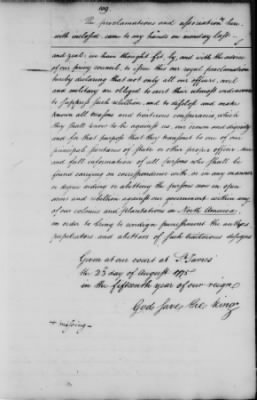 109
The proclamations and association here
with inclosed came to my hands on monday last
and zeal; we have thought fit, by, and with the advice
of our privy council, to issue this our royal proclamation
hereby declaring that not only all our officers, civil
and military are obliged to exert their utmost endeavours
to suppress such rebellion, and to disclose and make
known all treasons and traitorous conspiracies, which
they shall know to be against us, our crown and dignity
and for that purpose that they transmit to one of our
principal secretaries of state or other proper officer due
and full information of all persons who shall be
found carrying on correspondence with or in any manner
or degree aiding or abetting the persons now in open
arms and rebellion against our government within any
of our colonies and plantations in North America,
in order to bring to condign punishment the authors
perpetrators and abettors of such traiterous designs
Given at our court at St. James
the 23 day of August 1775
in the fifteenth year of our reign
God save the King
+ missing